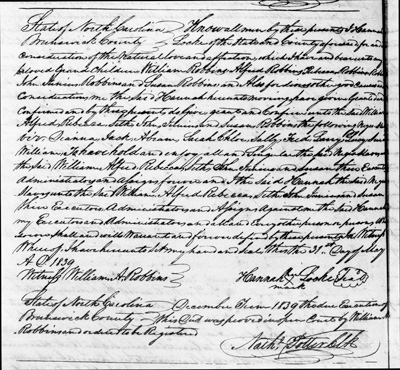 State of North Carolina Know all men by these presents I Hannah
Brunswick County Locke of the State and County aforesaid for and in
Consideration of the Natural love and affection which I have and bear unto my
beloved Grand Children William Robbins Alfred Robbins Rebecca Robbins
John Robbins and Susan Robbins and Also for divers other good causes and
Considerations me the said Hannah hereunto moving have given granted and
Confirmed and by these presents do give grant and Confirm unto the said William
Alfred Rebecca John and Susan Robbins the following Negroes
viz Jack Abram Sarah Chloe
William To have hold and enjoy all and Singular the said Negroes unto
the said William Alfred Rebecca John and Susan their Executors
Administrators and Assigns forever and I the Said Hannah the said
Negroes unto the said William Alfred Rebecca John and Susan
their Executors Administrators and Assigns Against me the said Hannah
my Executors and Administrators and all and every other person or persons
shall and will Warrant and forever defend by these presents In Witness
Whereof I have hereunto Set my hand and Seal this the 31st Day of May
A.D. 1839
Witness William A. Robbins Hannah Locke Seal
mark
State of North Carolina December Term 1839 Then the Execution of
Brunswick County this Deed was proved in open Court by William A
Robbins and ordered to be Registered
Nathl Potter Clk